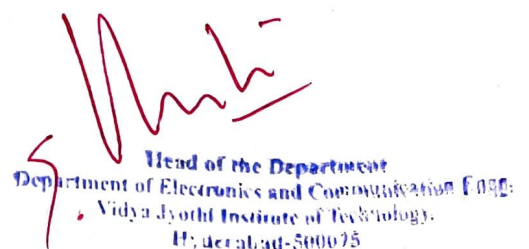 Head of the Department
Department of Electronics and Communication Engg.
Vidya Jyothi Institute of Technology,
Hyderabad-500075